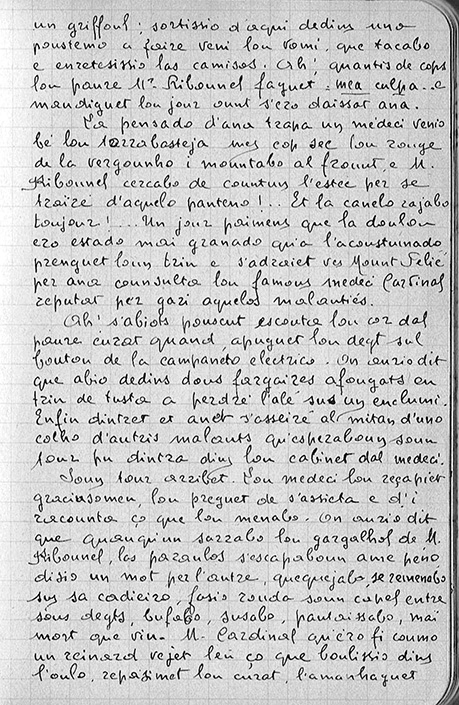 un griffoul: sortissio d'aqui dedins uno
poustemo a faire veni lou vomi, que tacabo
e enretesissio las camisos. Ah! quantis de cops
lou paure Mr Ribounel faguet: mea culpa.. e
maudiguet lou jour ount s'ero daissat ana.
La pensado d'ana trapa un medeci venio
bé lou tarrabasteja mes cop sec lou rouge
de la vergounho i mountabo al frount, e M.
Ribounel cercabo de countun l'estec per se
traire d'aquelo panteno!.. Et la canelo rajabo
toujour!... Un jour paimens que la doulou
ero estado mai granado qu'a l'acoustumado
prenguet loun trin e s'adraiet ves Mount Pelié
per ana counsulta lou famous medeci Cardinal
reputat per gari aquelos malautiés.
Ah! s'abiots pouscut escouta lou cor dal
paure curat quand apuguet lou degt sul
boutou de la campaneto electrico. On aurio dit
que abio dedins dous fargaires afougats en
trin de tusta a perdre l'alé sus un enclumi.
Enfin dintret et anet s'asseire al mitan d'uno
colho d'autris malauts qu'esperaboun soun
tour pu dintra dins lou cabinet dal medeci.
Soun tour arribet. Lou medeci lou reçapiet
graciusomen, lou preguet de s'assieta e d'i
racounta ço que lou menabo. On aurio dit
que quauqu'un sarrabo lou gargalhol de M.
Ribounel, las paraulos s'escapaboun ame peno
disio un mot per l'autre, quequejabo, se remenabo
sus sa cadieiro, fasio rounda soun capel entre
sous degts, bufabo, susabo, pantaissabo, mai
mort que viu. M. Cardinal qu'ero fi coumo
un reinard vejet leu ço que boulissio dins
l'oulo, repasimet lou curat, l'amanhaguet